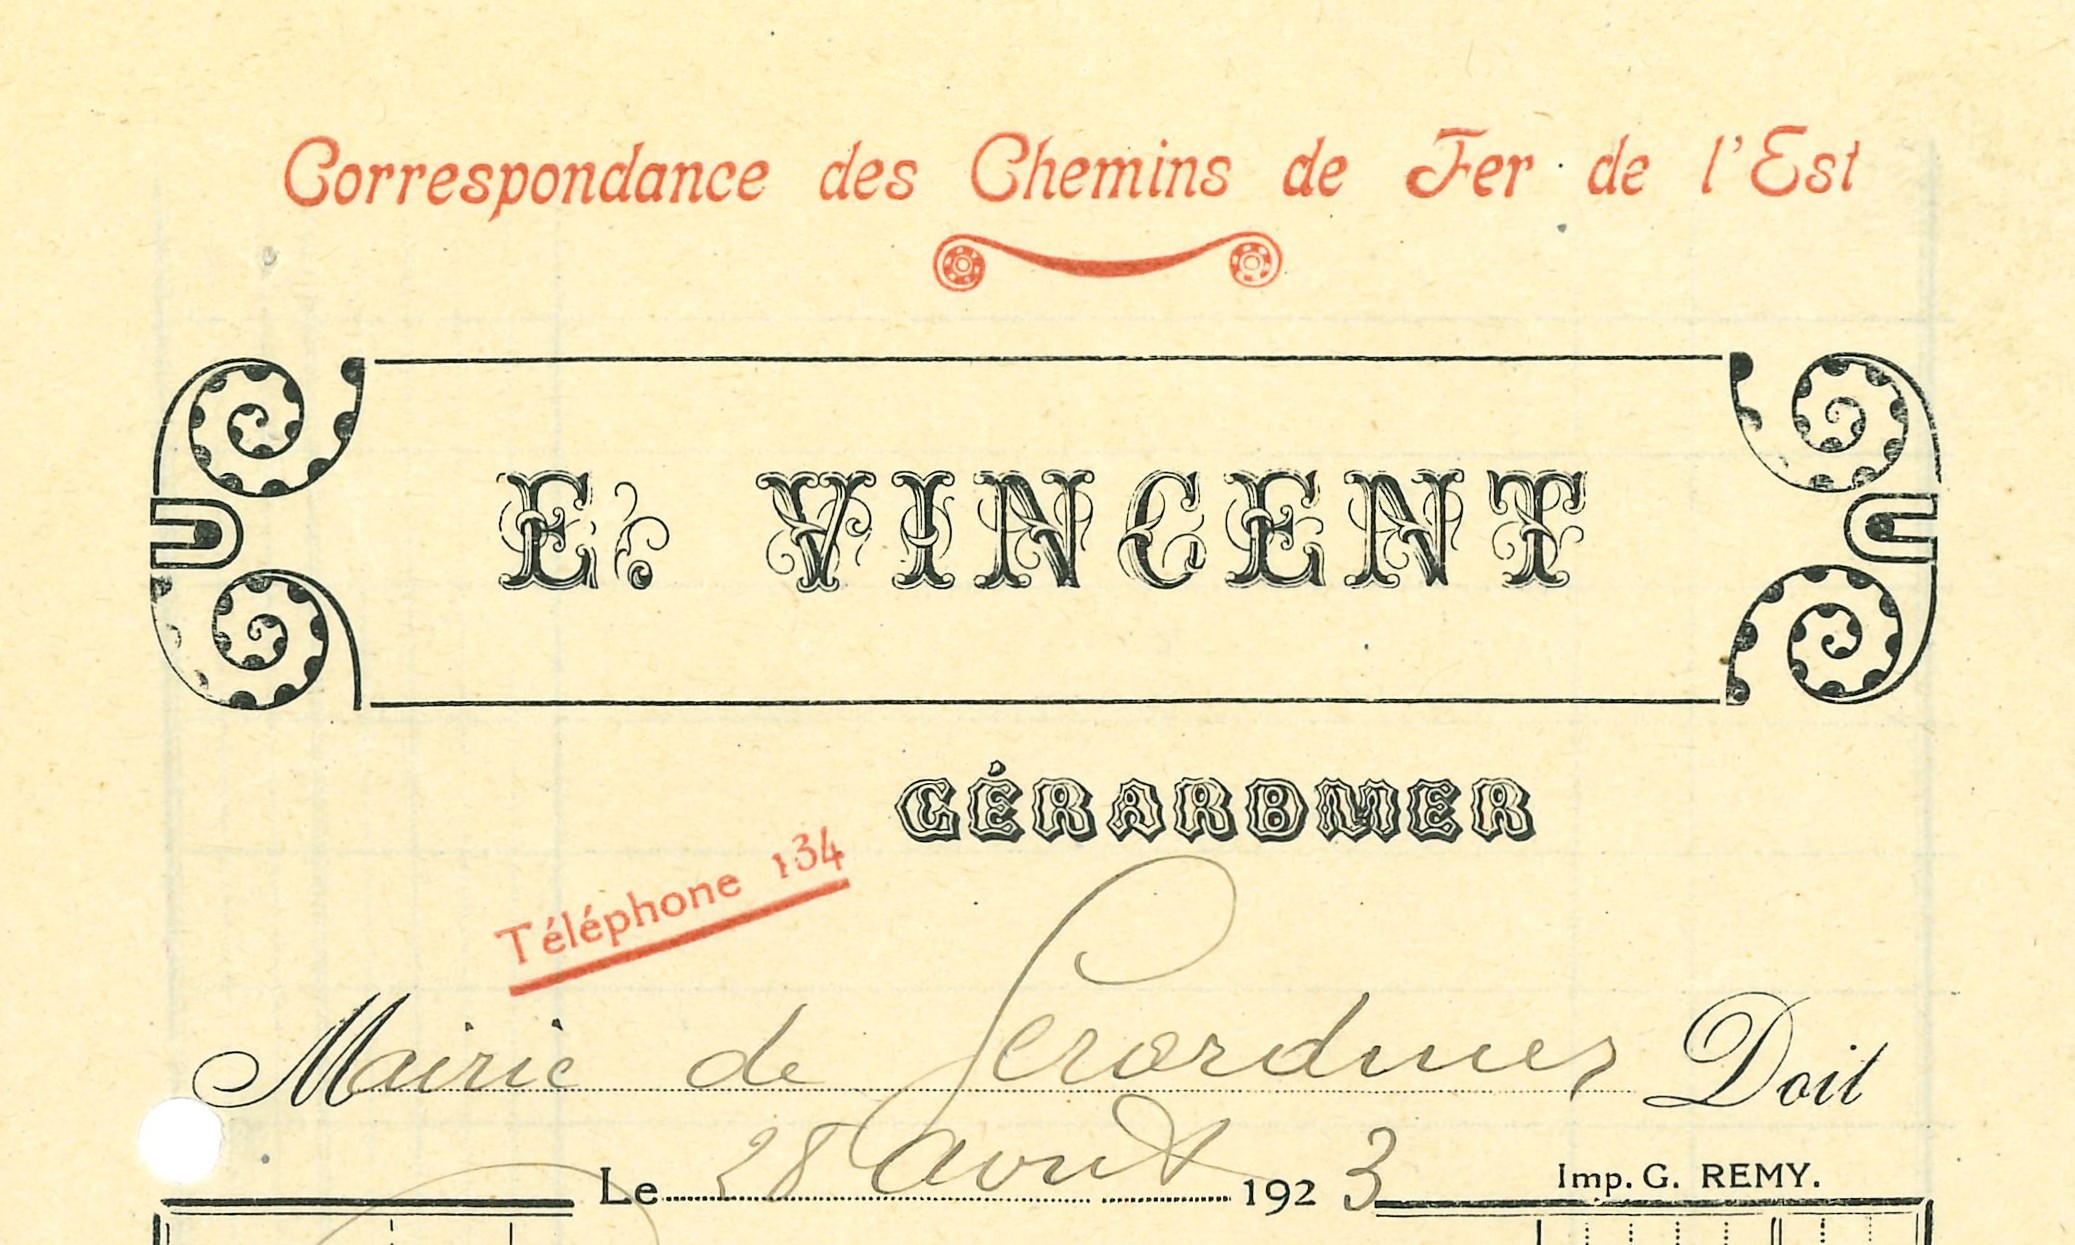 Correspondance des Chemins de Fer de l'Est
E. VINCENT
GÉRARDMER
Téléphone 134
Mairie de Gerardmer Doit
Le 28 Aout 1923
Imp. G. REMY.